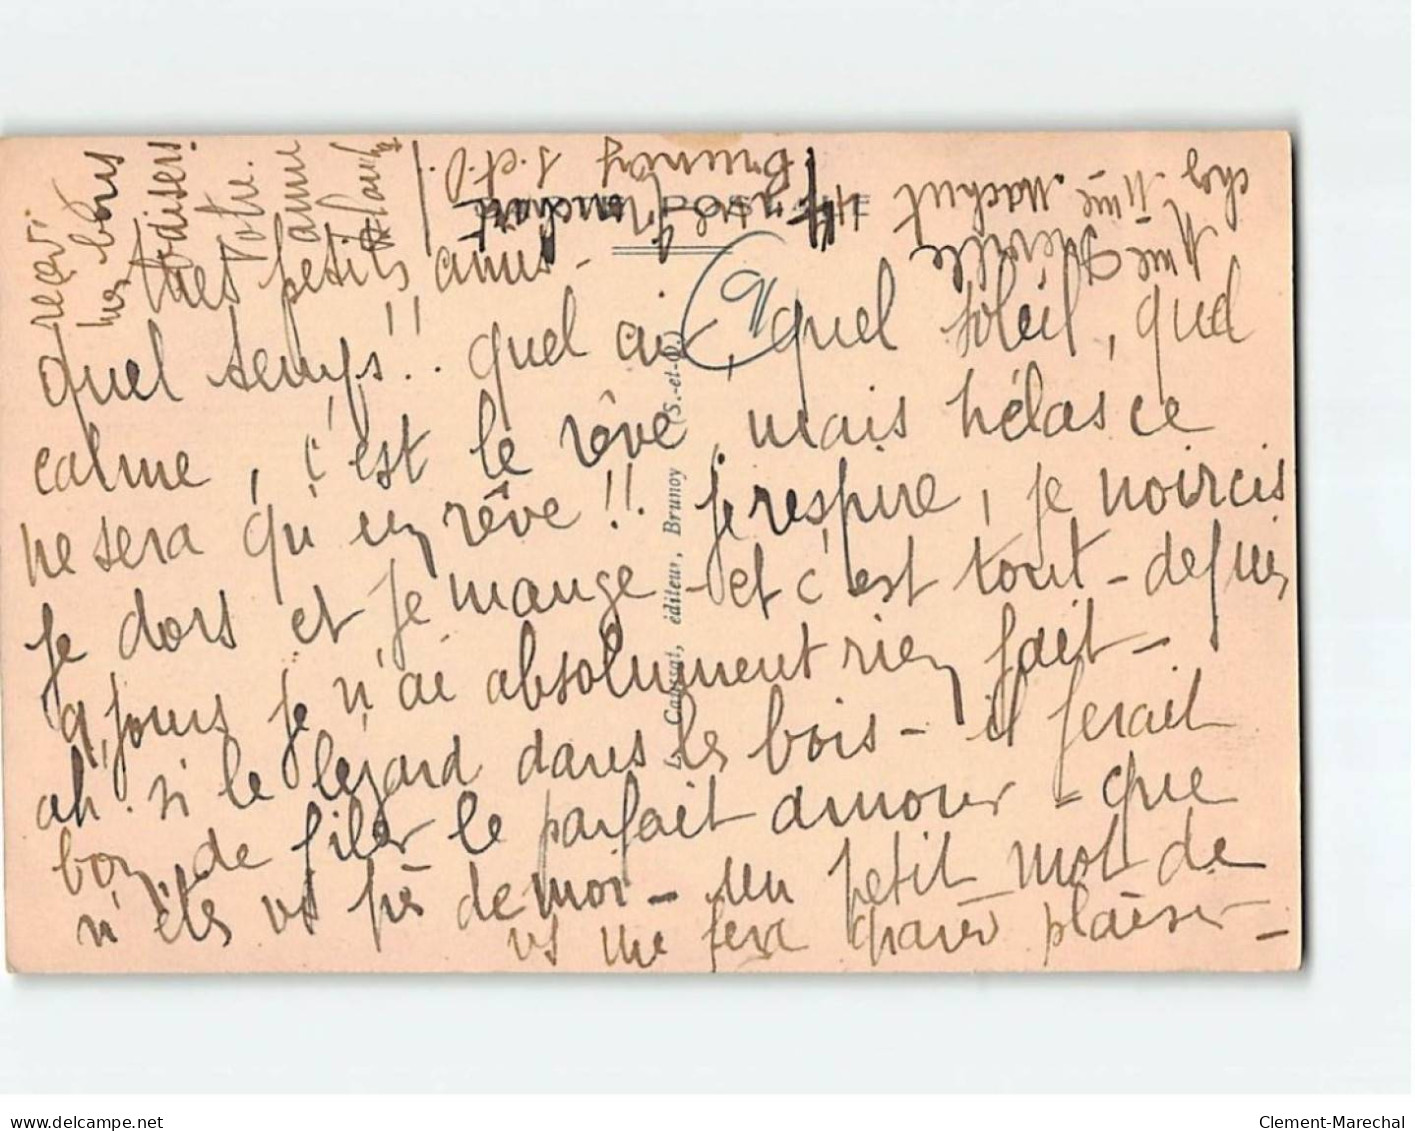 mes petits amis -
quel temps!! quel air, quel soleil, quel
calme, c'est le rêve, mais hélas ce
ne sera qu'un rêve!! Je respire, je noircis
je dors et je mange - et c'est tout - depuis
9 jours je n'ai absolument rien fait -
ah. si le lézard dans les bois - il ferait
bon de filer le parfait amour - que
n'êtes vs près de moi - un petit mot de
vs me fera grand plaisir -
recev.
mes bons
baisers
Votre
amie
Mme
chez Mme Machut
44 rue
Brunoy
S. et O.
POSTALE
9
L. Caussat, éditeur, Brunoy (S.-et-O.)
delcampe.net
Clement-Marechal